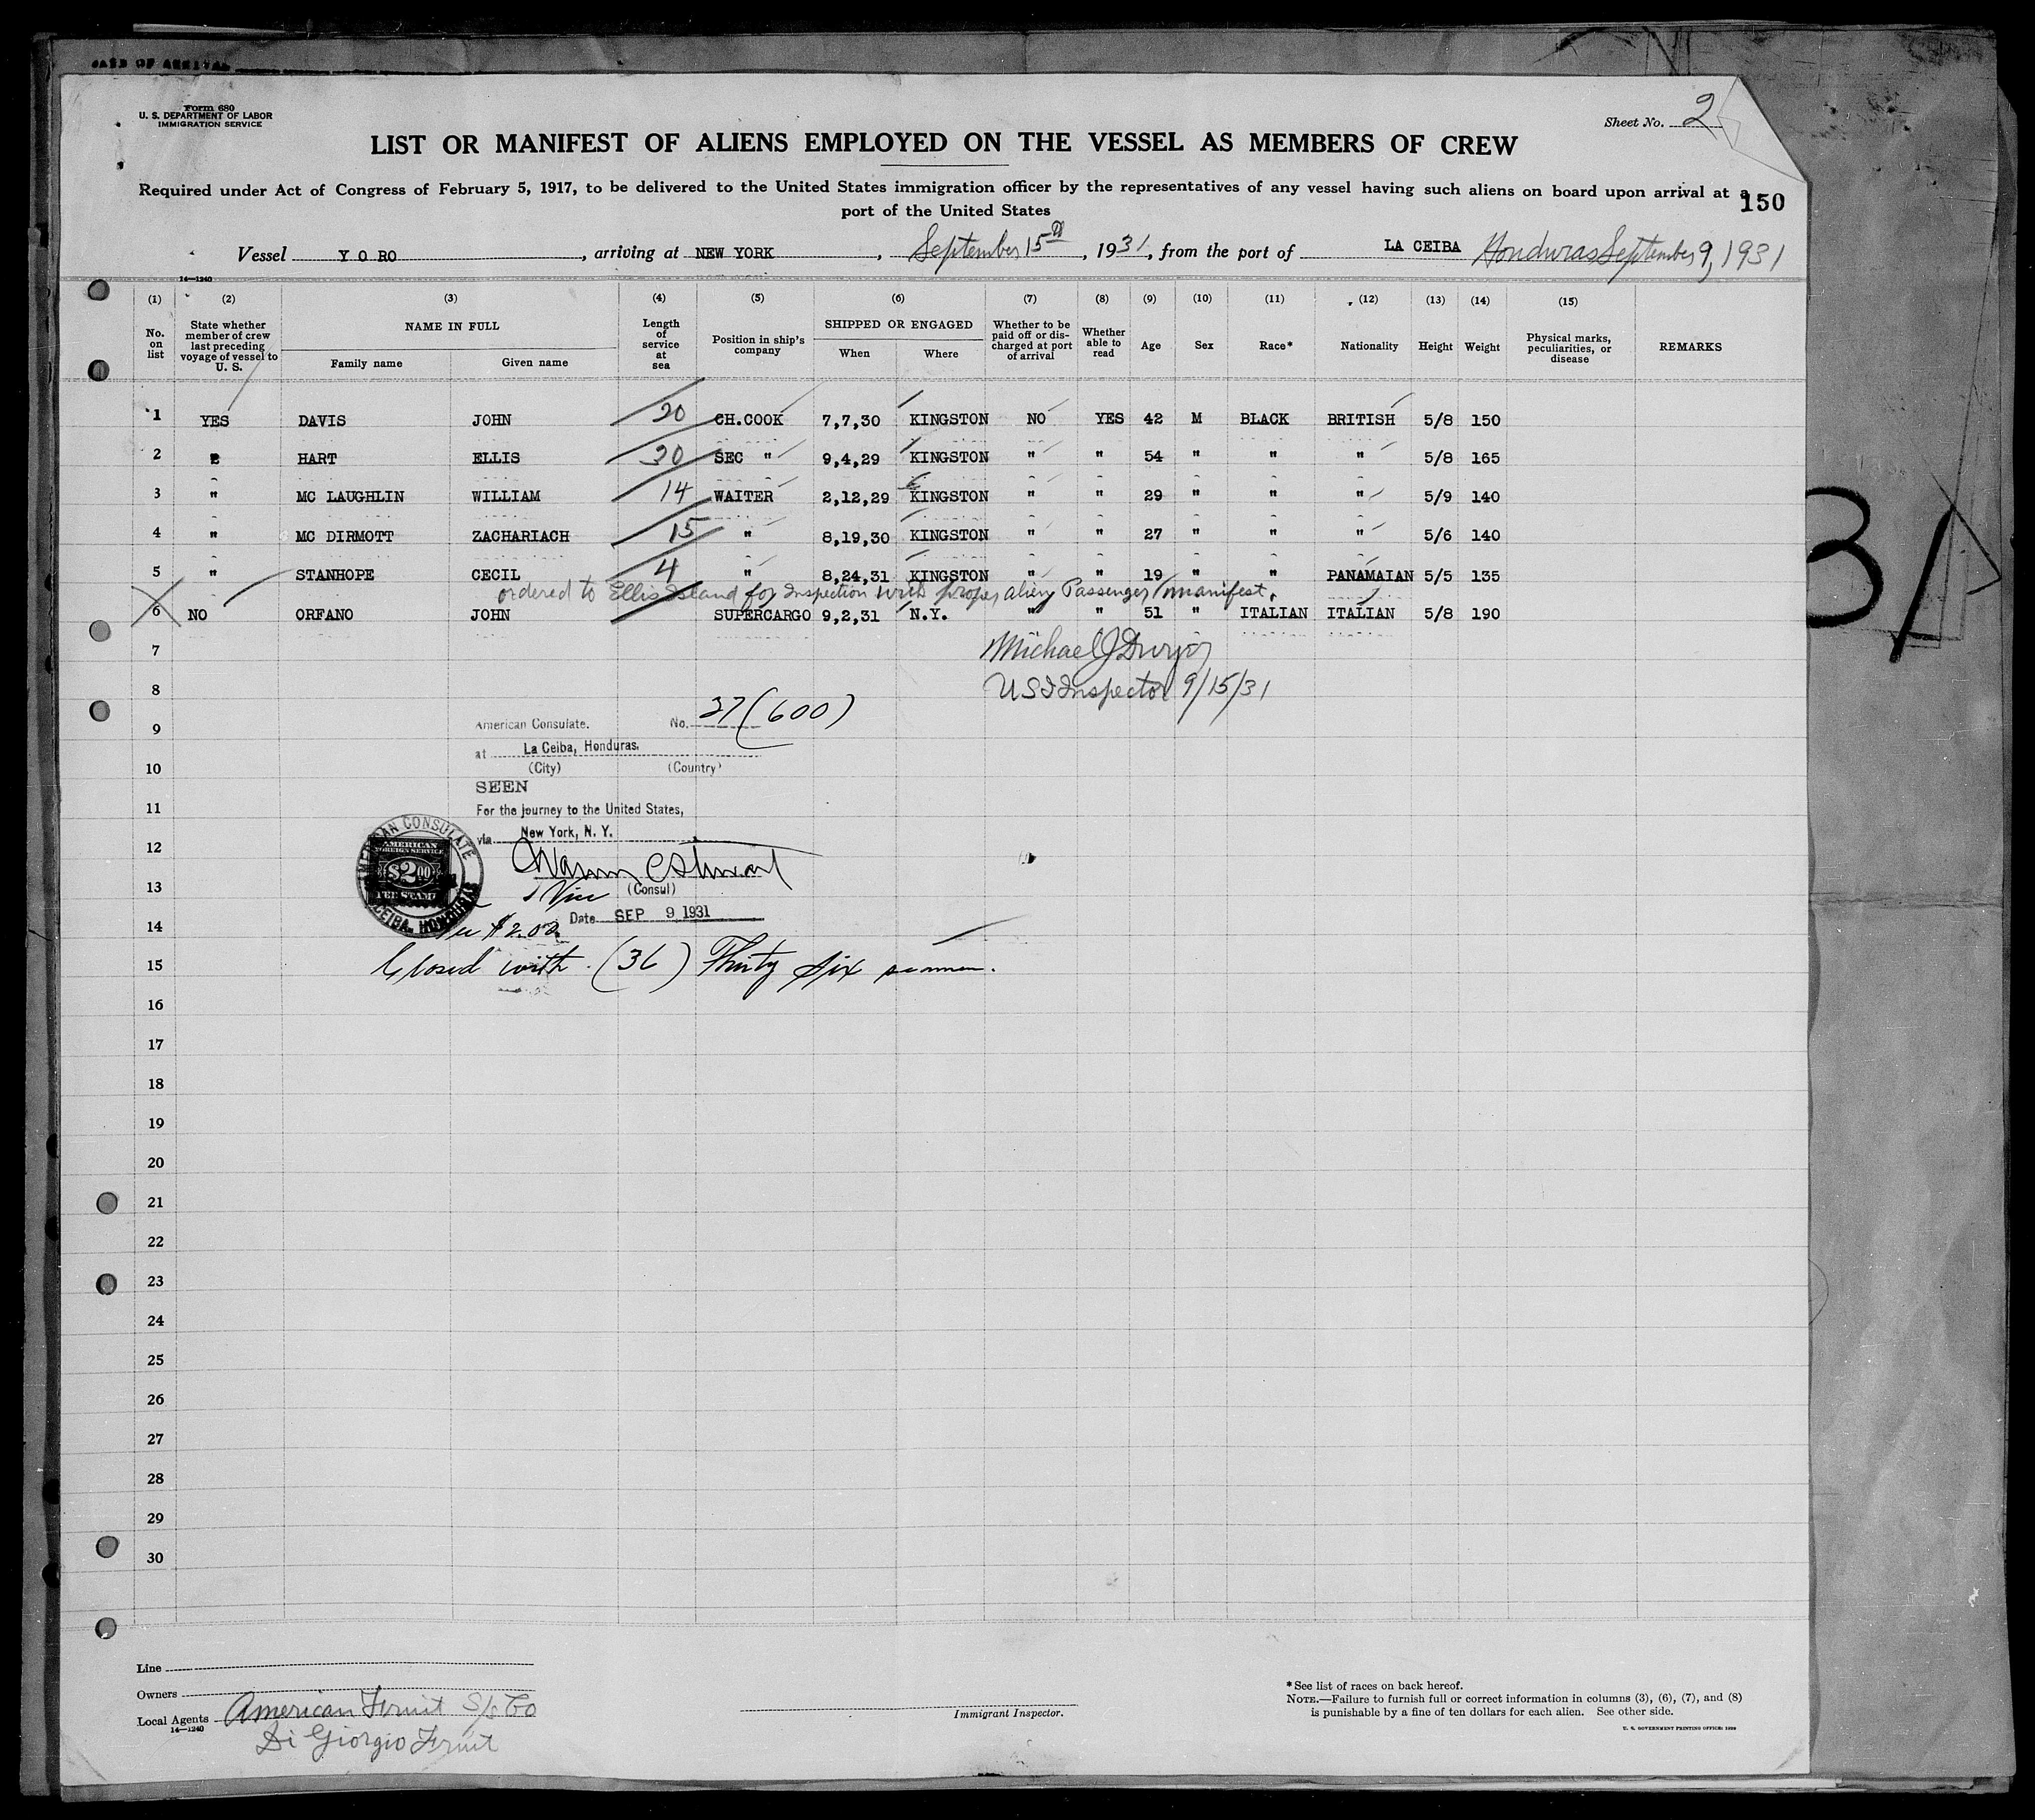 DATE OF ARRIVAL
Form 680
U. S. DEPARTMENT OF LABOR
IMMIGRATION SERVICE
Sheet No. 2
LIST OR MANIFEST OF ALIENS EMPLOYED ON THE VESSEL AS MEMBERS OF CREW
Required under Act of Congress of February 5, 1917, to be delivered to the United States immigration officer by the representatives of any vessel having such aliens on board upon arrival at a
port of the United States
150
Vessel Y O RO, arriving at NEW YORK, September 15th, 1931, from the port of LA CEIBA Honduras September 9, 1931
14-1240
(1) (2) (3) (4) (5) (6) (7) (8) (9) (10) (11) (12) (13) (14) (15)
No. on list
State whether member of crew last preceding voyage of vessel to U. S.
NAME IN FULL
Family name Given name
Length of service at sea
Position in ship's company
SHIPPED OR ENGAGED
When Where
Whether to be paid off or discharged at port of arrival
Whether able to read
Age Sex Race* Nationality Height Weight
Physical marks, peculiarities, or disease
REMARKS
1 YES DAVIS JOHN 20 CH.COOK 7,7,30 KINGSTON NO YES 42 M BLACK BRITISH 5/8 150
2 " HART ELLIS 30 SEC " 9,4,29 KINGSTON " " 54 " " " 5/8 165
3 " MC LAUGHLIN WILLIAM 14 WAITER 2,12,29 KINGSTON " " 29 " " " 5/9 140
4 " MC DIRMOTT ZACHARIACH 15 " 8,19,30 KINGSTON " " 27 " " " 5/6 140
5 " STANHOPE CECIL 4 " 8,24,31 KINGSTON " " 19 " " PANAMAIAN 5/5 135
ordered to Ellis Island for Inspection with proper alien Passenger manifest.
6 NO ORFANO JOHN SUPERCARGO 9,2,31 N.Y. " " 51 " ITALIAN ITALIAN 5/8 190
7
Michael J
8
US I Inspector 9/15/31
9
American Consulate. No. 37 (600)
at La Ceiba, Honduras.
10
(City) (Country)
SEEN
11
For the journey to the United States,
via New York, N. Y.
12
AMERICAN CONSULATE
LA CEIBA, HONDURAS
AMERICAN
FOREIGN SERVICE
$2.00
FEE STAMP
13
Vice (Consul)
Date SEP 9 1931
14
Fee $2.00
15
Closed with (36) Thirty six seamen.
16
17
18
19
20
21
22
23
24
25
26
27
28
29
30
Line
Owners
Local Agents American Fruit S/s Co
14-1240
Di Giorgio Fruit
Immigrant Inspector.
*See list of races on back hereof.
NOTE.—Failure to furnish full or correct information in columns (3), (6), (7), and (8)
is punishable by a fine of ten dollars for each alien. See other side.